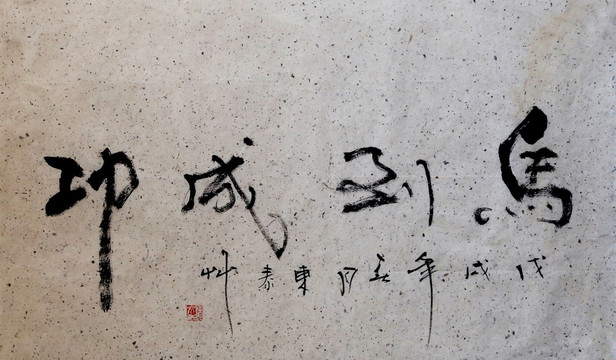 馬到成功
戊戌年五月東泰艸